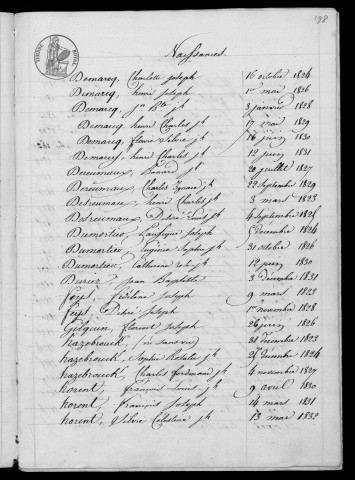 198
Naissances
Demarcq, Charlotte Joseph 16 octobre 1824
Demarcq, henri Joseph 1er mai 1826
Demarcq, Jn Bte jh 3 janvier 1828
Demarcq, henri Charles jh 17 mai 1829
Demarcq, flavie Silvie jh 16 juin 1830
Demarcq, henri Charles jh 12 juin 1831
Benard jh 20 juillet 1827
Charles Ignace jh 22 septembre 1829
Detreumaux, henri Charles jh 3 mars 1823
Detreumaux, Désiré Louis jh 4 septembre 1825
Dumortier, Joseph 5 décembre 1824
Dumortier, Eugénie Sophie jh 31 octobre 1826
Dumortier, Catherine jh 12 juin 1830
Duriez, Jean Baptiste 3 décembre 1831
feys, Joseph 9 mars 1823
feys Désiré Joseph 1er novembre 1828
Ghlquin, florent Joseph 26 juin 1826
hazebrouck, (né sans vie) 31 décembre 1823
hazebrouck, Sophie Rosalie jh 25 décembre 1824
hazebrouck, Charles ferdinand jh 4 novembre 1827
horent, françois Louis jh 9 avril 1830
horent, françois Joseph 14 mars 1831
horent, Silvie Celestine jh 13 mai 1832